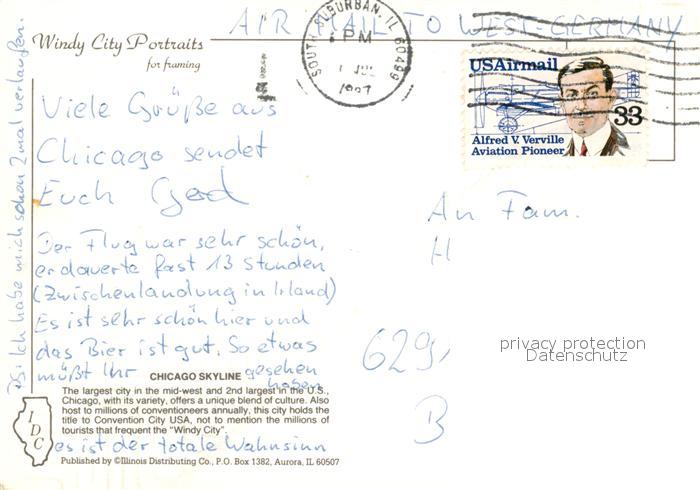 AIR MAIL TO WEST-GERMANY
Windy City Portraits
for framing
SOUTH SUBURBAN, IL 60499
PM
USAirmail
33
Alfred V. Verville
Aviation Pioneer
Viele Grüße aus
Chicago sendet
Euch Gerd
Der Flug war sehr schön,
er dauerte fast 13 Stunden
(Zwischenlandung in Irland)
Es ist sehr schön hier und
das Bier ist gut. So etwas
müßt Ihr gesehen
haben
es ist der totale Wahnsinn
PS: Ich habe mich schon 2 mal verlaufen.
CHICAGO SKYLINE
The largest city in the mid-west and 2nd largest in the U.S.,
Chicago, with its variety, offers a unique blend of culture. Also
host to millions of conventioneers annually, this city holds the
title to Convention City USA, not to mention the millions of
tourists that frequent the "Windy City".
IDC
Published by ©Illinois Distributing Co., P.O. Box 1382, Aurora, IL 60507
An Fam.
H
629
B
privacy protection
Datenschutz